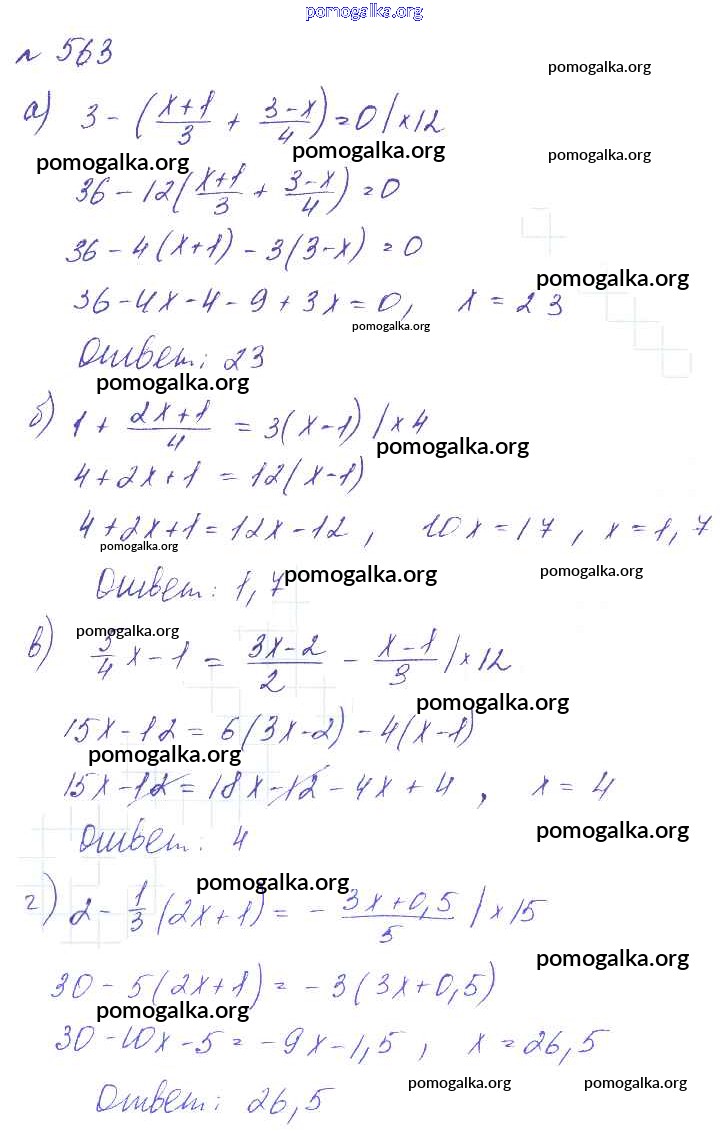 pomogalka.org
№ 563
pomogalka.org
а) 3 - (x+1/3 + 3-x/4) = 0 | x12
pomogalka.org pomogalka.org pomogalka.org
36 - 12(x+1/3 + 3-x/4) = 0
36 - 4(x+1) - 3(3-x) = 0
pomogalka.org
36 - 4x - 4 - 9 + 3x = 0, x = 23
pomogalka.org
Ответ: 23
pomogalka.org
б) 1 + 2x+1/4 = 3(x-1) | x4
pomogalka.org
4 + 2x + 1 = 12(x-1)
4 + 2x + 1 = 12x - 12, 10x = 17, x = 1,7
pomogalka.org
Ответ: 1,7
pomogalka.org pomogalka.org
pomogalka.org
в) 3/4 x - 1 = 3x-2/2 - x-1/3 | x12
pomogalka.org
15x - 12 = 6(3x-2) - 4(x-1)
pomogalka.org
15x - 12 = 18x - 12 - 4x + 4, x = 4
Ответ: 4
pomogalka.org
pomogalka.org
г) 2 - 1/3(2x+1) = - 3x+0,5/5 | x15
pomogalka.org
30 - 5(2x+1) = -3(3x+0,5)
pomogalka.org
30 - 10x - 5 = -9x - 1,5, x = 26,5
pomogalka.org pomogalka.org
Ответ: 26,5